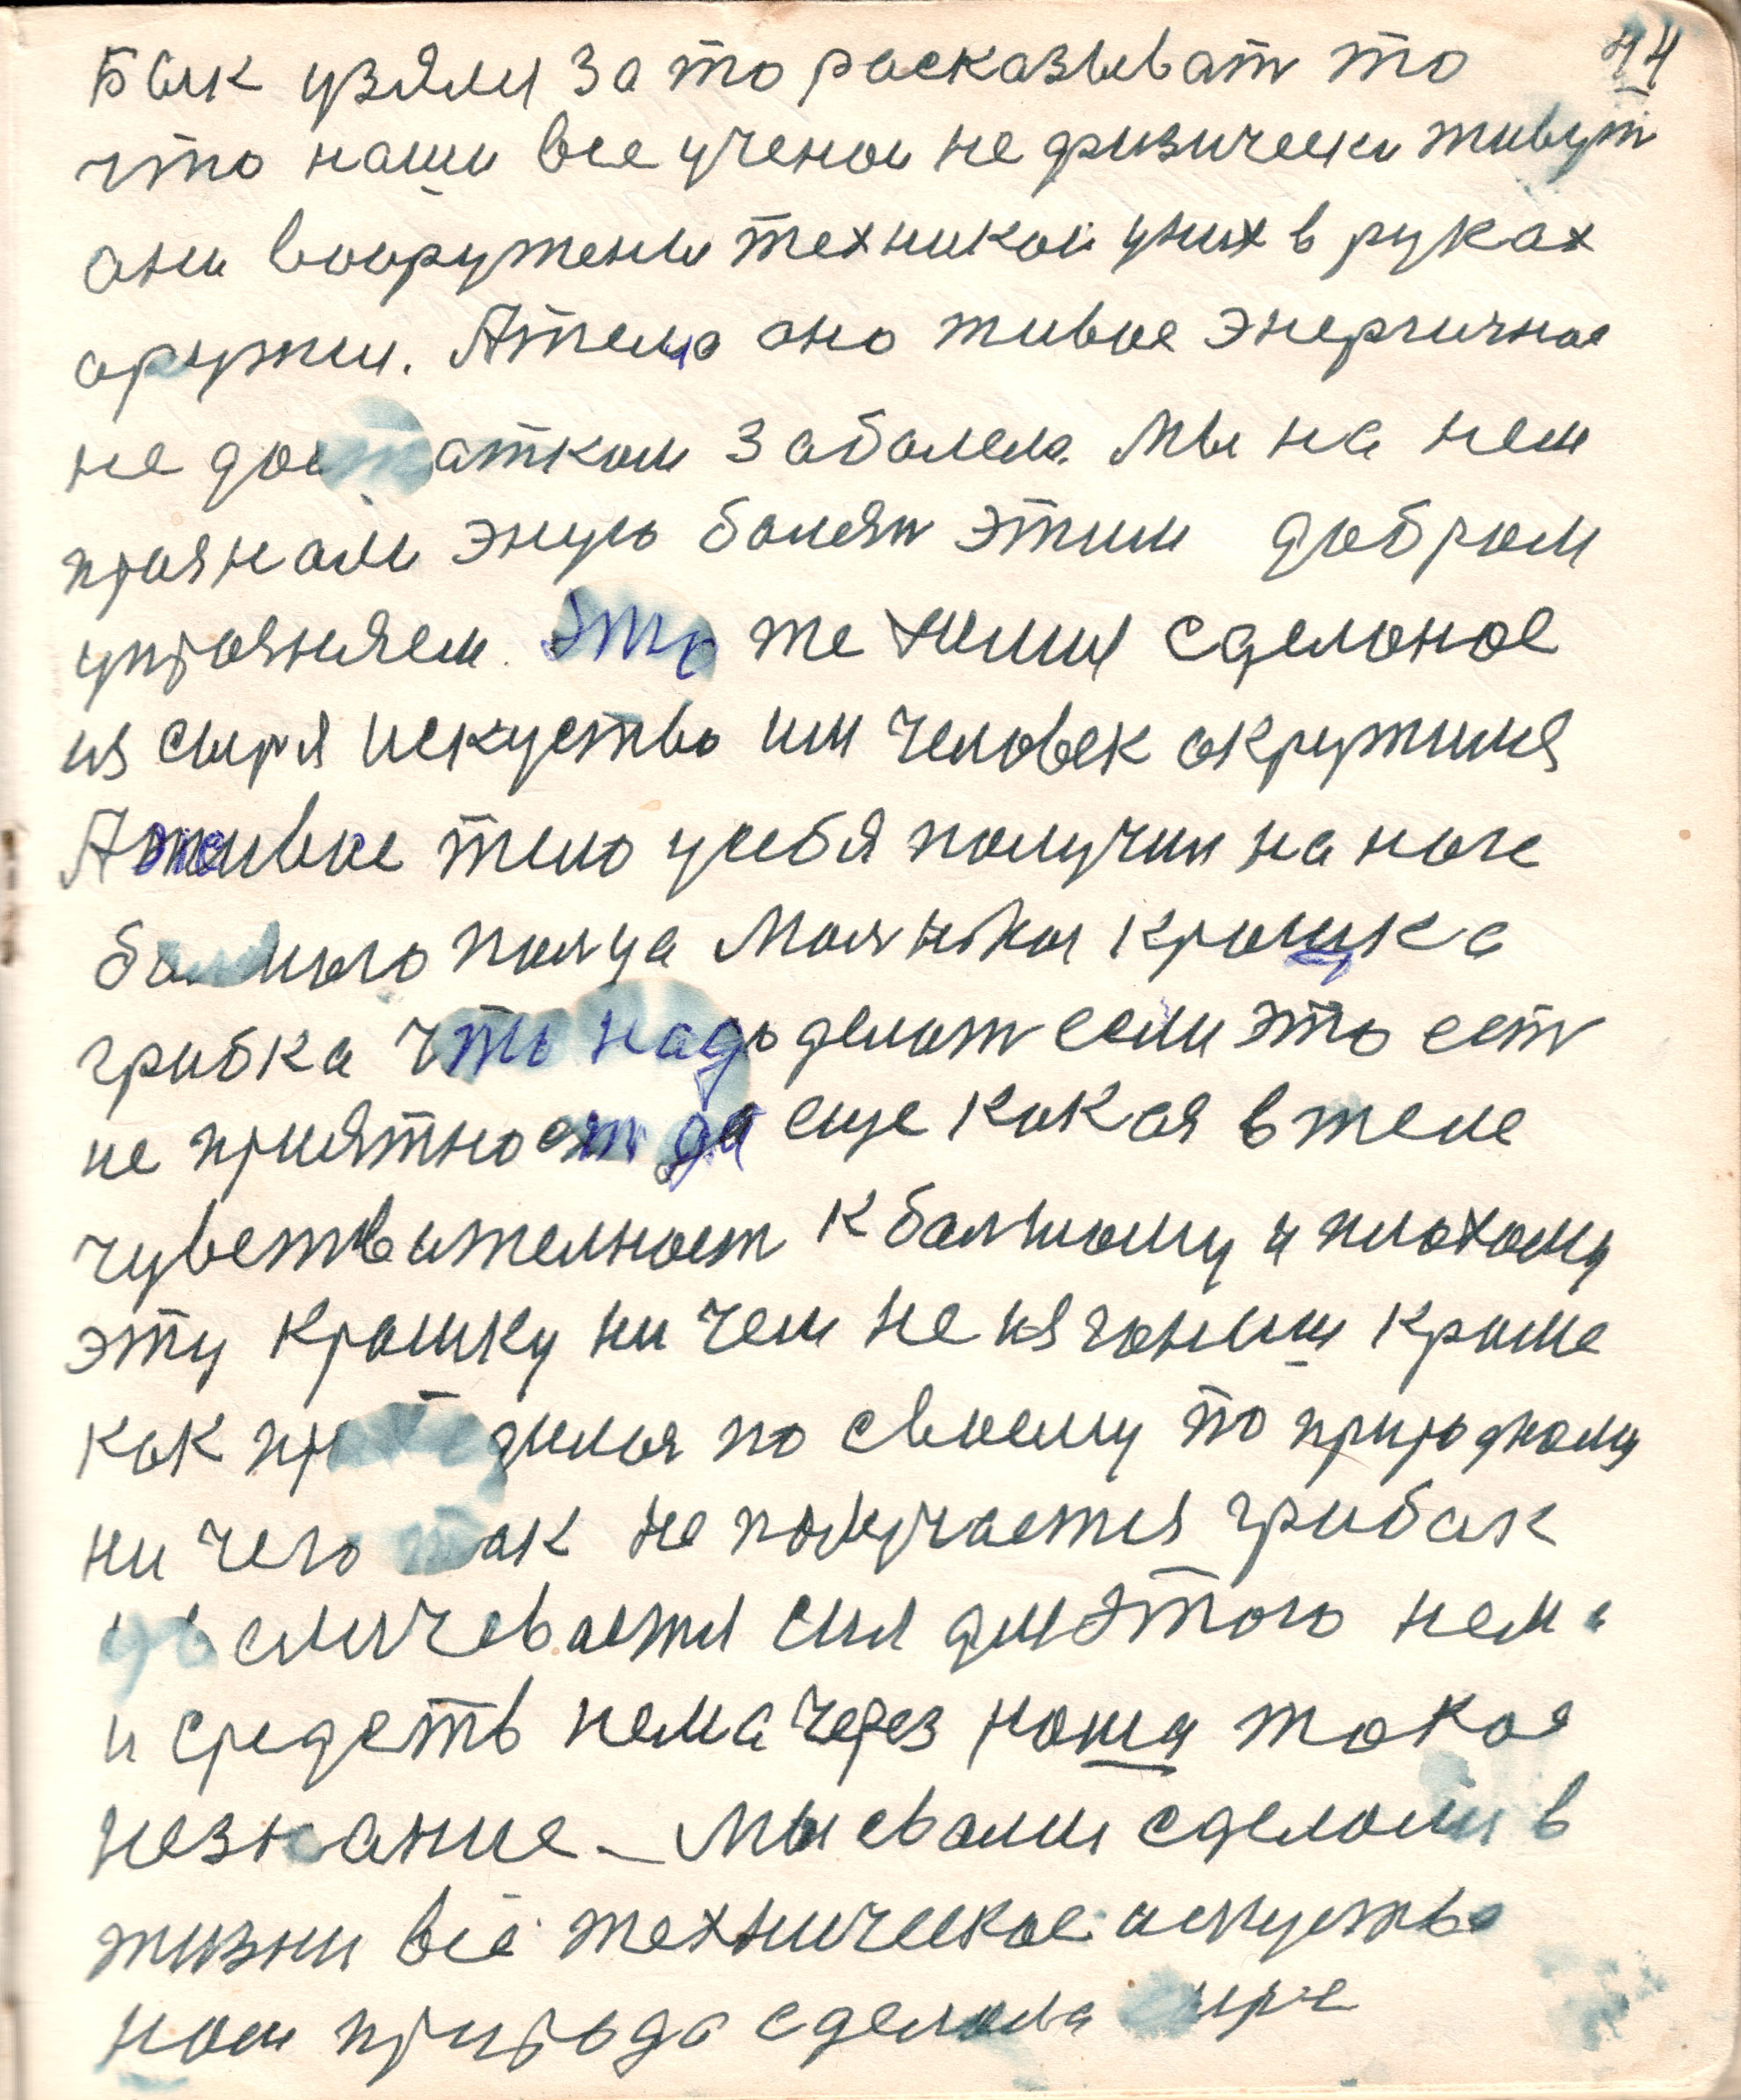 44
Бык узяли за то расказыват то
что наши все ученои не физически живут
они вооружени техникои у них в руках
оружии. А тело оно живое энергичное
не достатком заболело. Мы на нем
этим добром
упрожняем. Это же химия сделоное
из сыря искуство им человек окружился
А живое тело у себя получил на ноге
болшого палца Моля крошка
грибка что надо делат если это ест
не приятност да еще какая в теле
чувствителност к болшому и плохому
эту крошку ни чем не изгониш кроме
как природилоя по своему по природному
ни чего так не получается грибок
увеличевается сил для этого нема
и средств нема через ноша такое
незнание – Мы свами сделоли в
жизни всё техническое искуство
нам природа сделола сирё